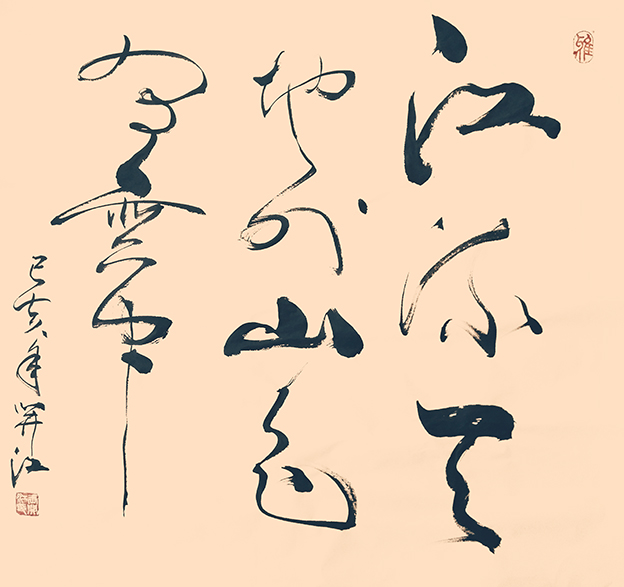 江流天
地外山色
有無中
己亥年開江